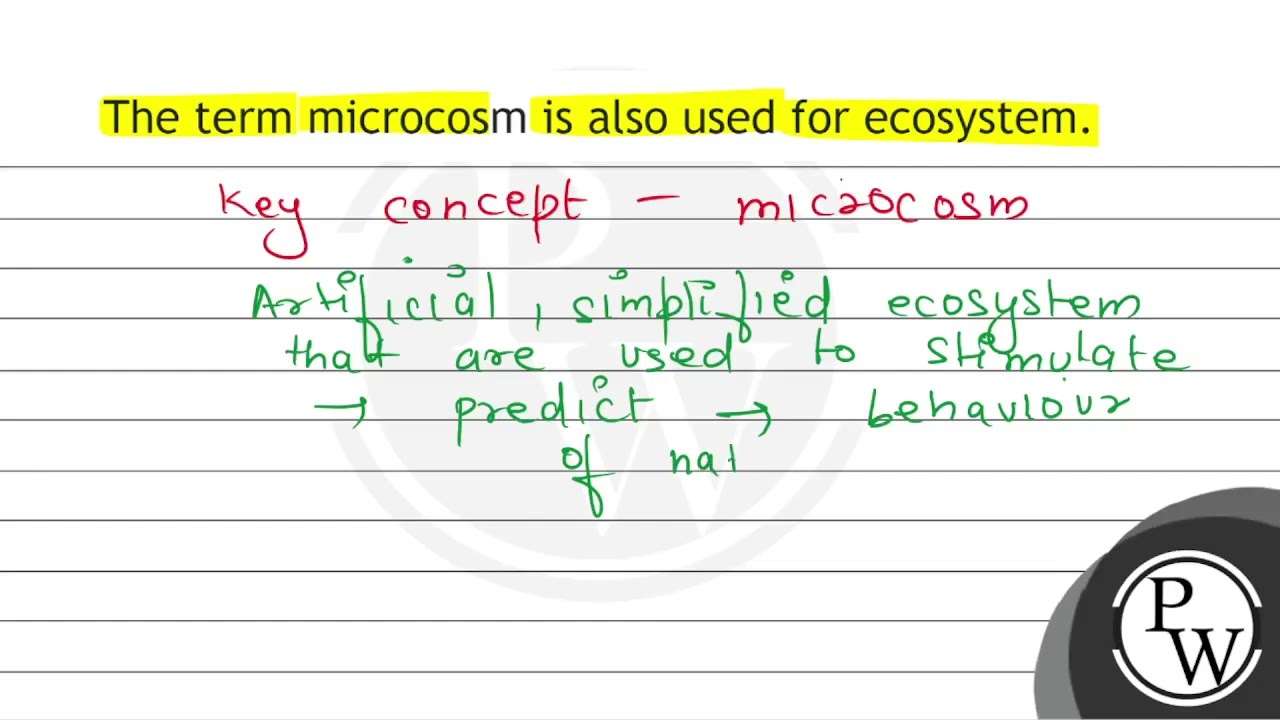 The term microcosm is also used for ecosystem.
Key concept - microcosm
Artificial, simplified ecosystem
that are used to stimulate
→ predict → behaviour
of nat
PW